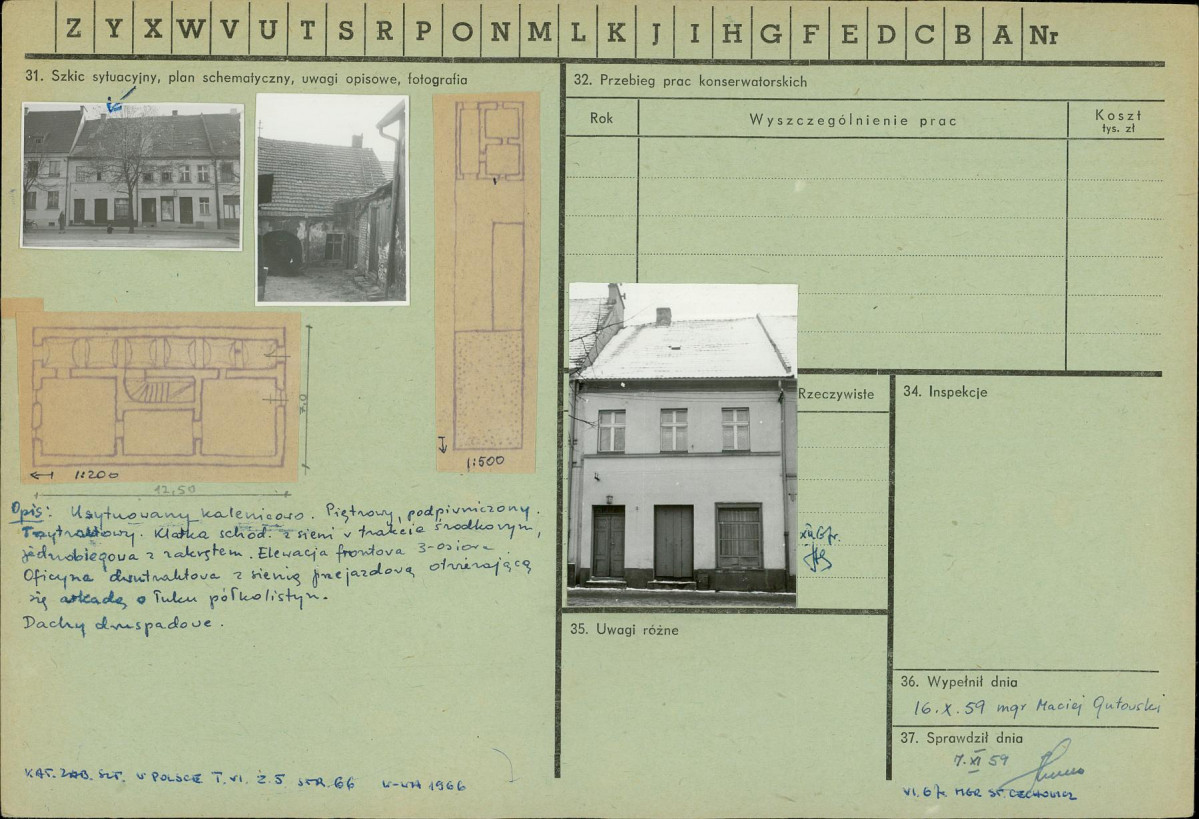 Z Y X W V U T S R P O N M L K J I H G F E D C B A Nr
31. Szkic sytuacyjny, plan schematyczny, uwagi opisowe, fotografia
1:500
1:200
7.0
12,50
Opis: Usytuowany kalenicowo. Piętrowy, podpiwniczony.
Trzytraktowy. Klatka schod. z sieni w trakcie środkowym,
jednobiegowa z zakrętem. Elewacja frontowa 3-osiowa
Oficyna dwutraktowa z sienią przejazdową otwierającą
się arkadą o łuku półkolistym.
Dachy dwuspadowe.
KAT. ZAB. SZT. W POLSCE T. VI. Z. 5 STR. 66 W-WA 1966
32. Przebieg prac konserwatorskich
Rok Wyszczególnienie prac Koszt
tys. zł
Rzeczywiste
34. Inspekcje
35. Uwagi różne
36. Wypełnił dnia
16.X.59 mgr Maciej Gutowski
37. Sprawdził dnia
7.XI 59
MGR ST. CECHOWICZ